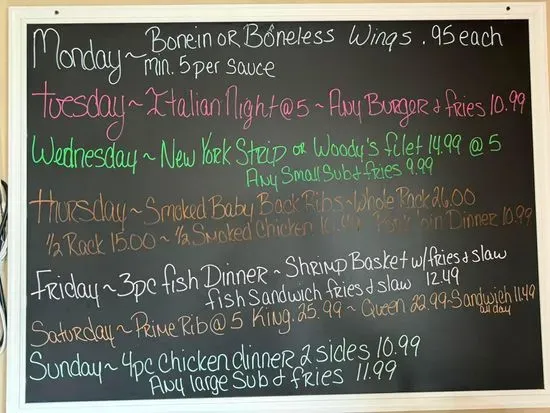 Monday~ Bonein or Boneless Wings .95 each
Min. 5 per sauce
Tuesday~ Italian Night @ 5 ~ Any Burger & fries 10.99
Wednesday~ New York Strip or Woody's filet 14.99 @ 5
Any Small Sub & fries 9.99
Thursday~ Smoked Baby Back Ribs~ Whole Rack 26.00
1/2 Rack 15.00 ~ 1/2 Smoked Chicken Dinner 10.99
Friday~ 3pc fish Dinner ~ Shrimp Basket w/fries & slaw
fish Sandwich fries & slaw 12.49
Saturday~ Prime Rib @ 5 King. 25.99 ~ Queen 22.99-Sandwich 11.49
all day
Sunday~ 4pc Chicken dinner 2 sides 10.99
Any large Sub & fries 11.99